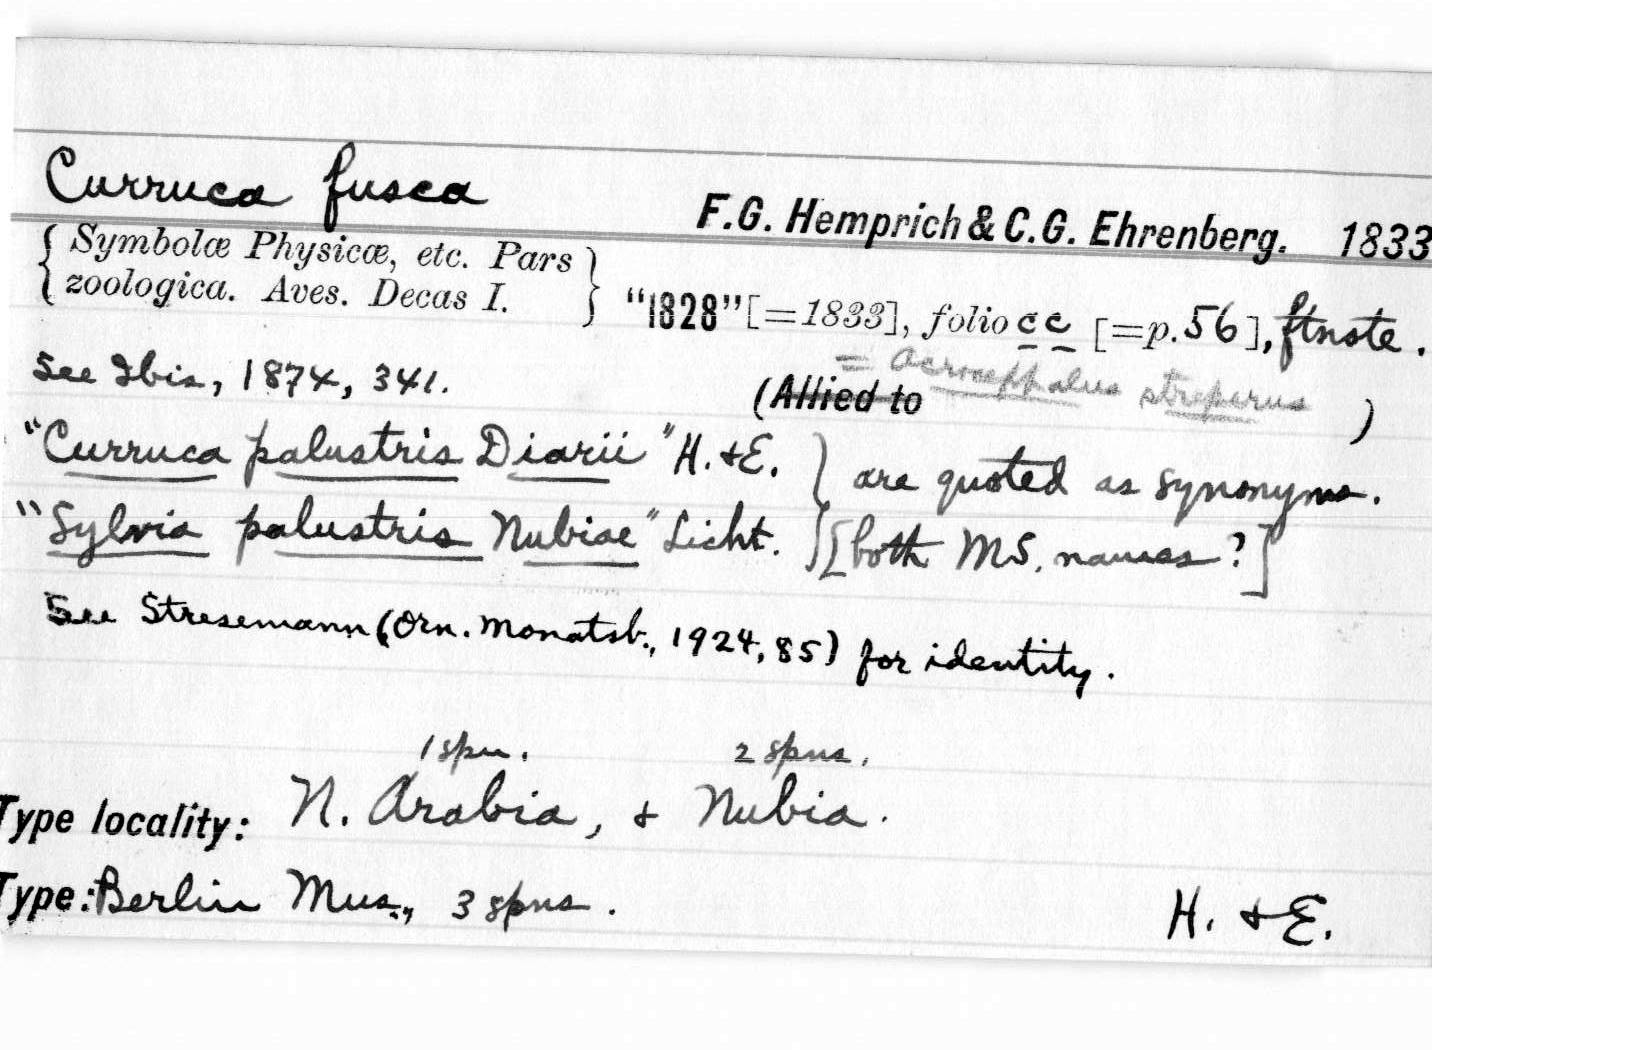 Curruca fusca
F.G. Hemprich & C.G. Ehrenberg. 1833
{ Symbolæ Physicæ, etc. Pars
zoologica. Aves. Decas I. } "1828" [=1833], folio c c [=p. 56], ftnote.
See Ibis, 1874, 341.
= Acrocephalus streperus
(Allied to )
"Curruca palustris Diarii" H. & E. } are quoted as synonyms.
"Sylvia palustris Nubiae" Licht. } [both MS. names?]
See Stresemann (Orn. Monatsb., 1924, 85) for identity.
1 spn. 2 spns.
Type locality: N. Arabia, & Nubia.
Type: Berlin Mus., 3 spns. H. & E.